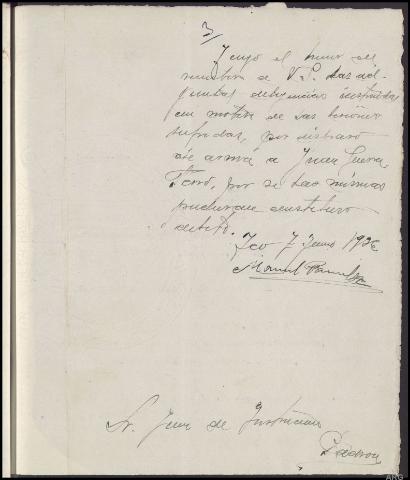 3/
Tengo el honor de
remitir a V.S. las ad-
juntas diligencias instruidas
con motivo de las lesiones
sufridas, por disparo
de arma a Juan
por si las mismas
pudieran constituir
delito.
7 Junio 1936
Manuel
Sr. Juez de Instrucción
Padron
ARG